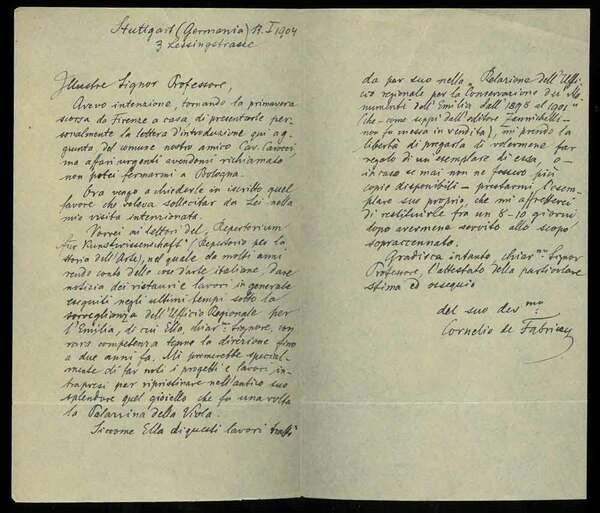 Stuttgart (Germania) 17. I 1904
3 Lessingstrasse
Illustre Signor Professore,
Avevo intenzione, tornando la primavera
scorsa da Firenze a casa, di presentarle per-
sonalmente la lettera d'introduzione qui ag-
giunta del comune nostro amico Cav.
ma affari urgenti avendomi richiamato
non potei fermarmi a Bologna.
Ora vengo a chiederle in iscritto quel
favore che voleva sollecitar da Lei nella
mia visita intenzionata.
Vorrei ai lettori del "Repertorium
für Kunstwissenschaft" (Repertorio per la
storia dell'Arte), nel quale da molti anni
rendo conto delle cose d'arte italiane, dare
notizia dei ristauri e lavori in generale
eseguiti negli ultimi tempi sotto la
sorveglianza dell'Ufficio Regionale per
l'Emilia, di cui Ella, chiar.mo Signore, con
rara competenza tenne la direzione fino
a due anni fa. Mi premerebbe special-
mente di far noti i progetti e lavori in-
trapresi per ripristinare nell'antico suo
splendore quel gioiello che fu una volta
la Palazzina della Viola.
Siccome Ella di questi lavori trattò
da par suo nella "Relazione dell'Uffi-
cio regionale per la Conservazione dei Mo-
numenti dell'Emilia dall'1898 al 1901"
(che - come seppi dall'editore Zannichelli -
non fu messa in vendita), mi prendo la
libertà di pregarla di volermene far
regalo di un esemplare di essa, o -
in caso se mai non ne fossero più
copie disponibili - prestarmi l'esem-
plare suo proprio, che mi affretterei
di restituirle fra un 8-10 giorni,
dopo avermene servito allo scopo
sopraccennato.
Gradisca intanto, chiar.mo Signor
Professore, l'attestato della particolare
stima ed ossequio
del suo dev.mo
Cornelio de Fabriczy